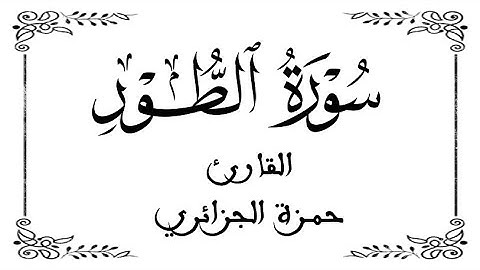 سُورَةُ ٱلطُّورِ
القارئ
حمزة الجزائري